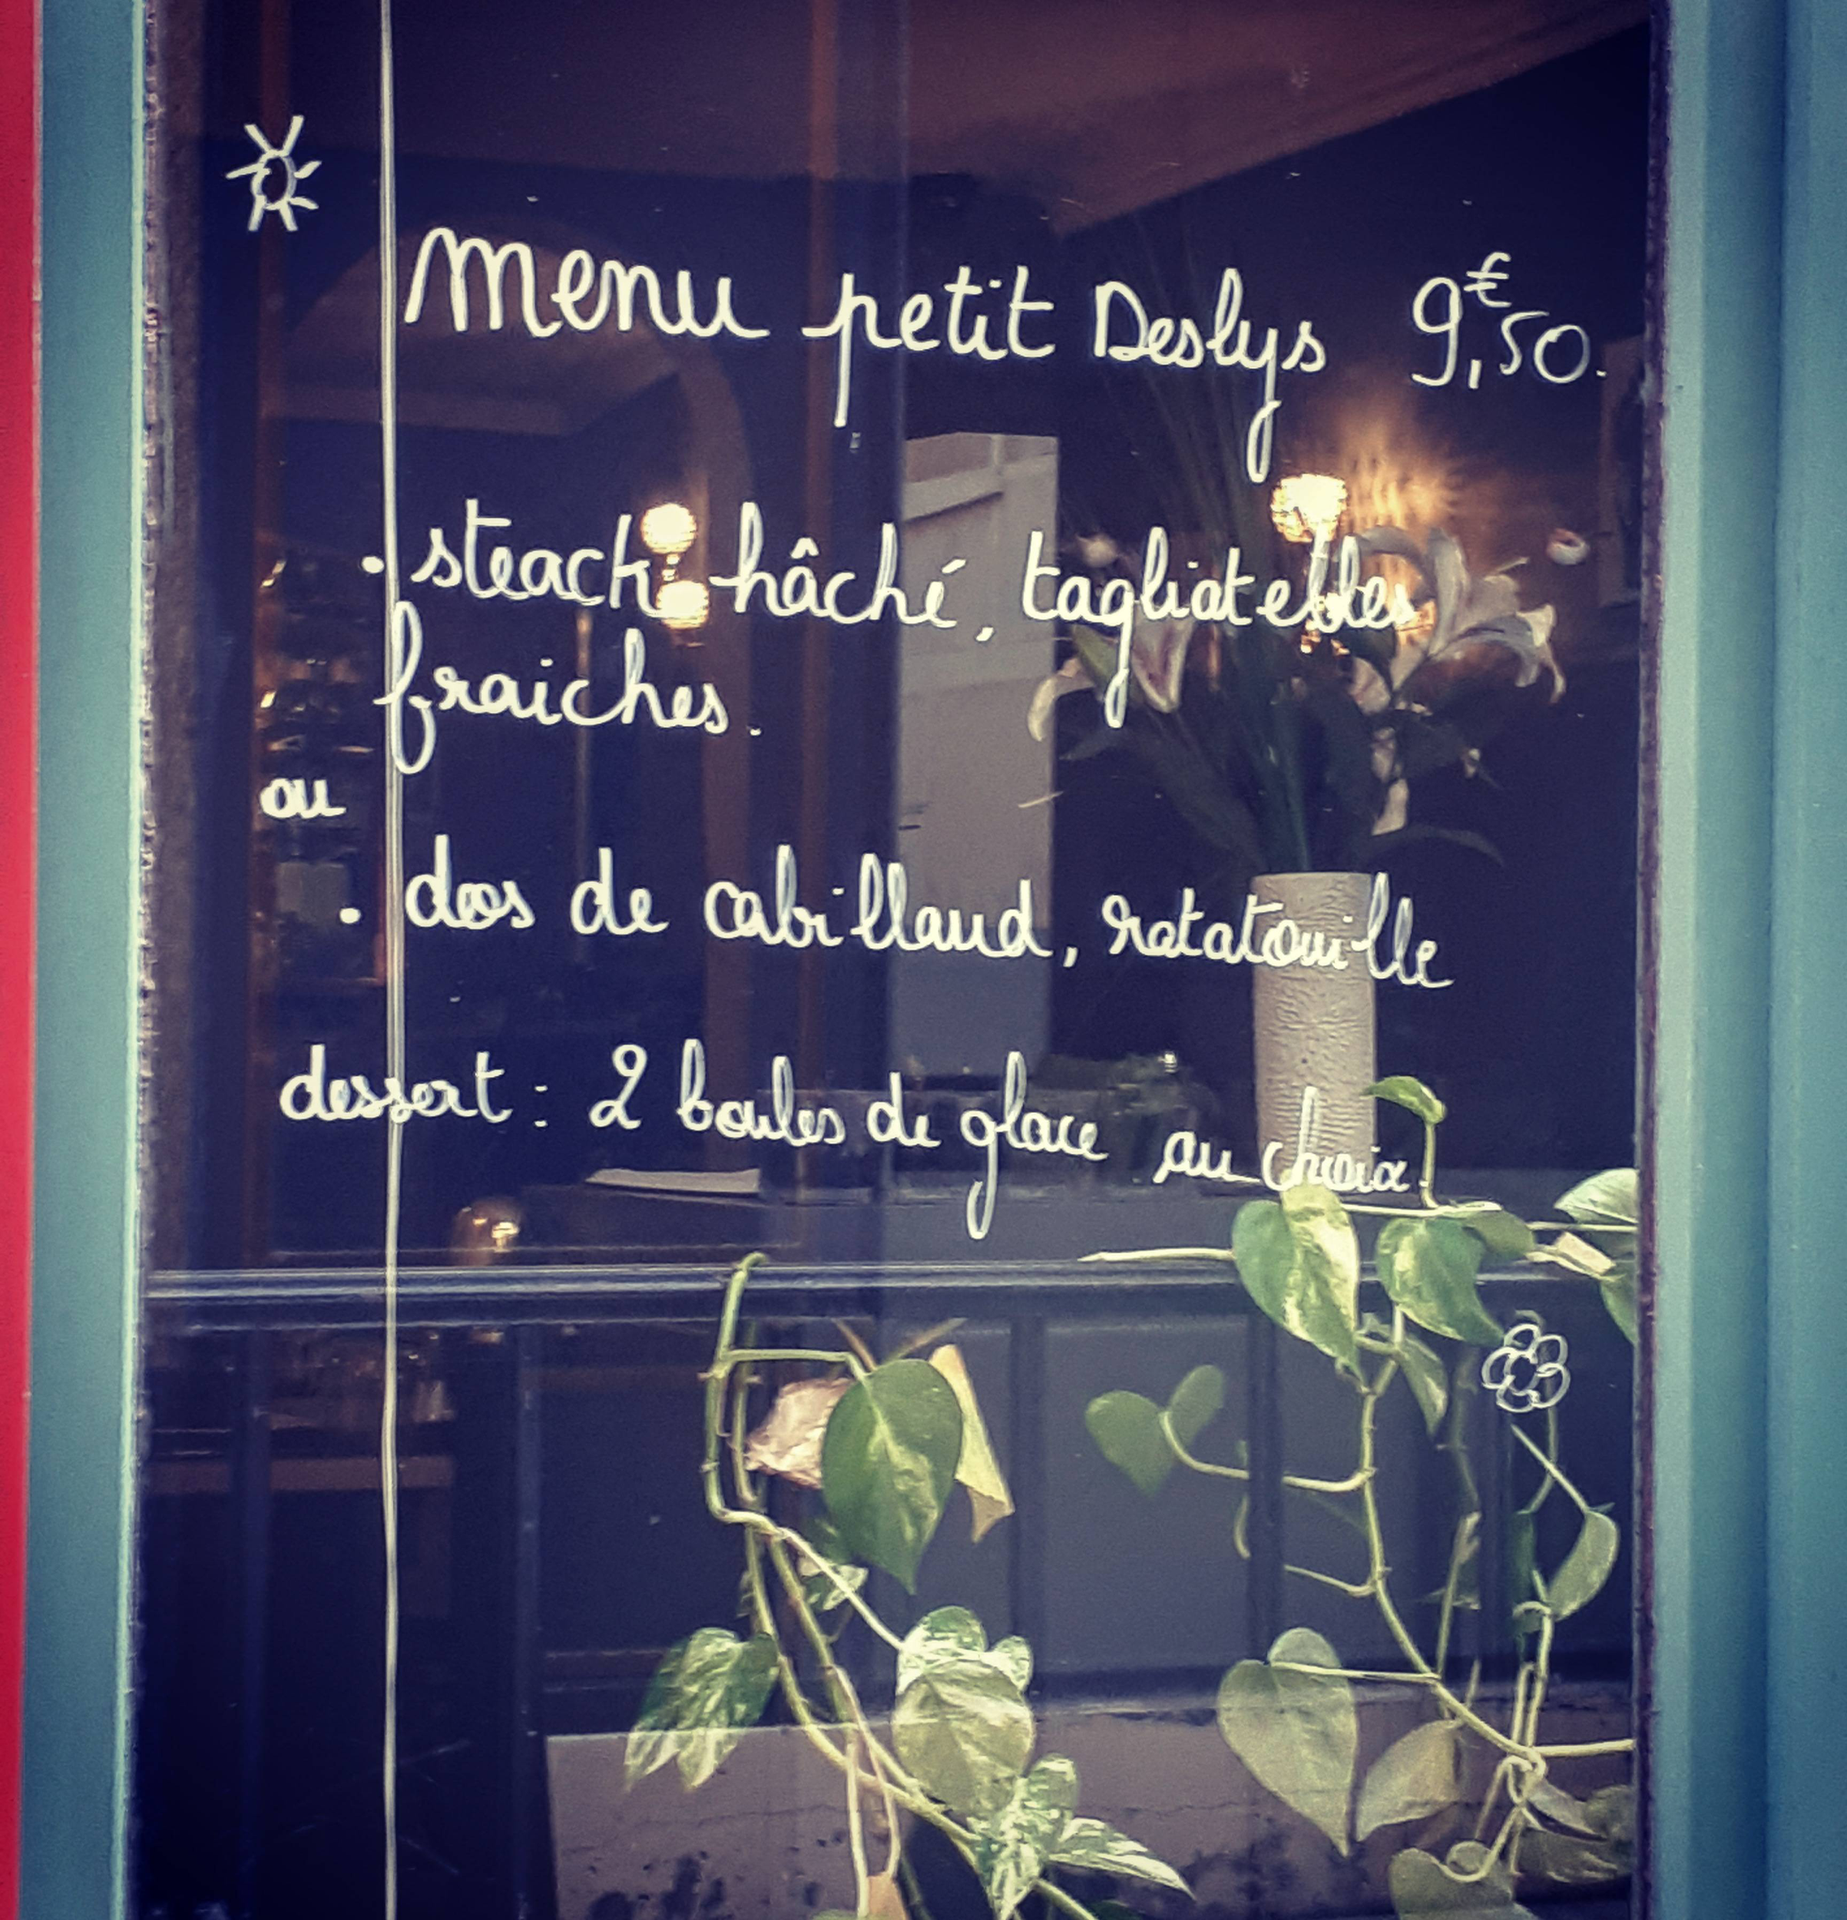 menu petit Deslys 9,€50.
• steack hâché, tagliatelles
fraiches.
ou
• dos de cabillaud, ratatouille
dessert : 2 boules de glace au choix.